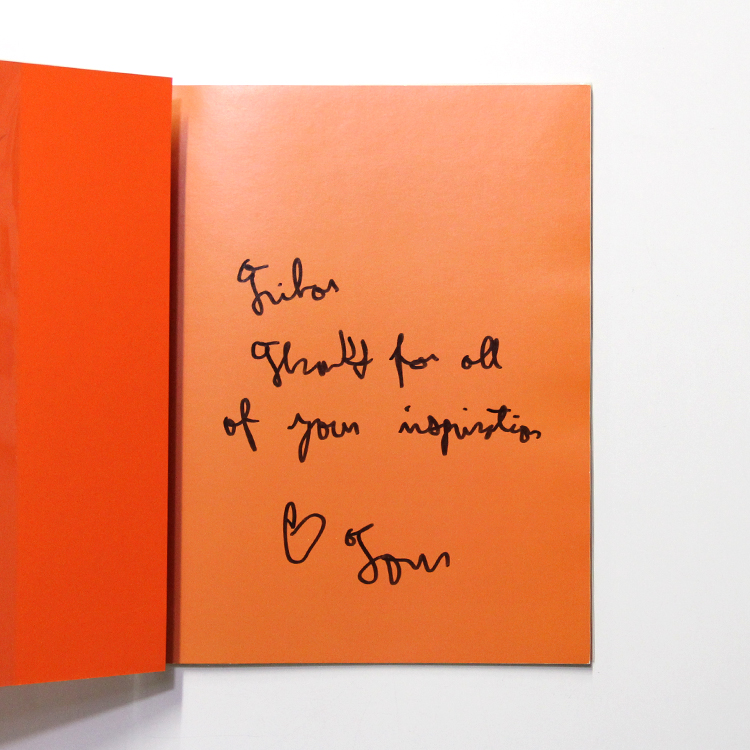 Tibor
Thanks for all
of your inspiration